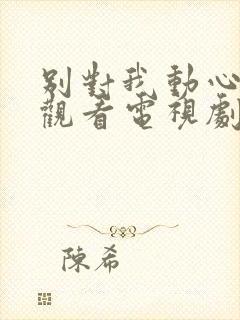 別對我動心
觀看電視劇
陳希